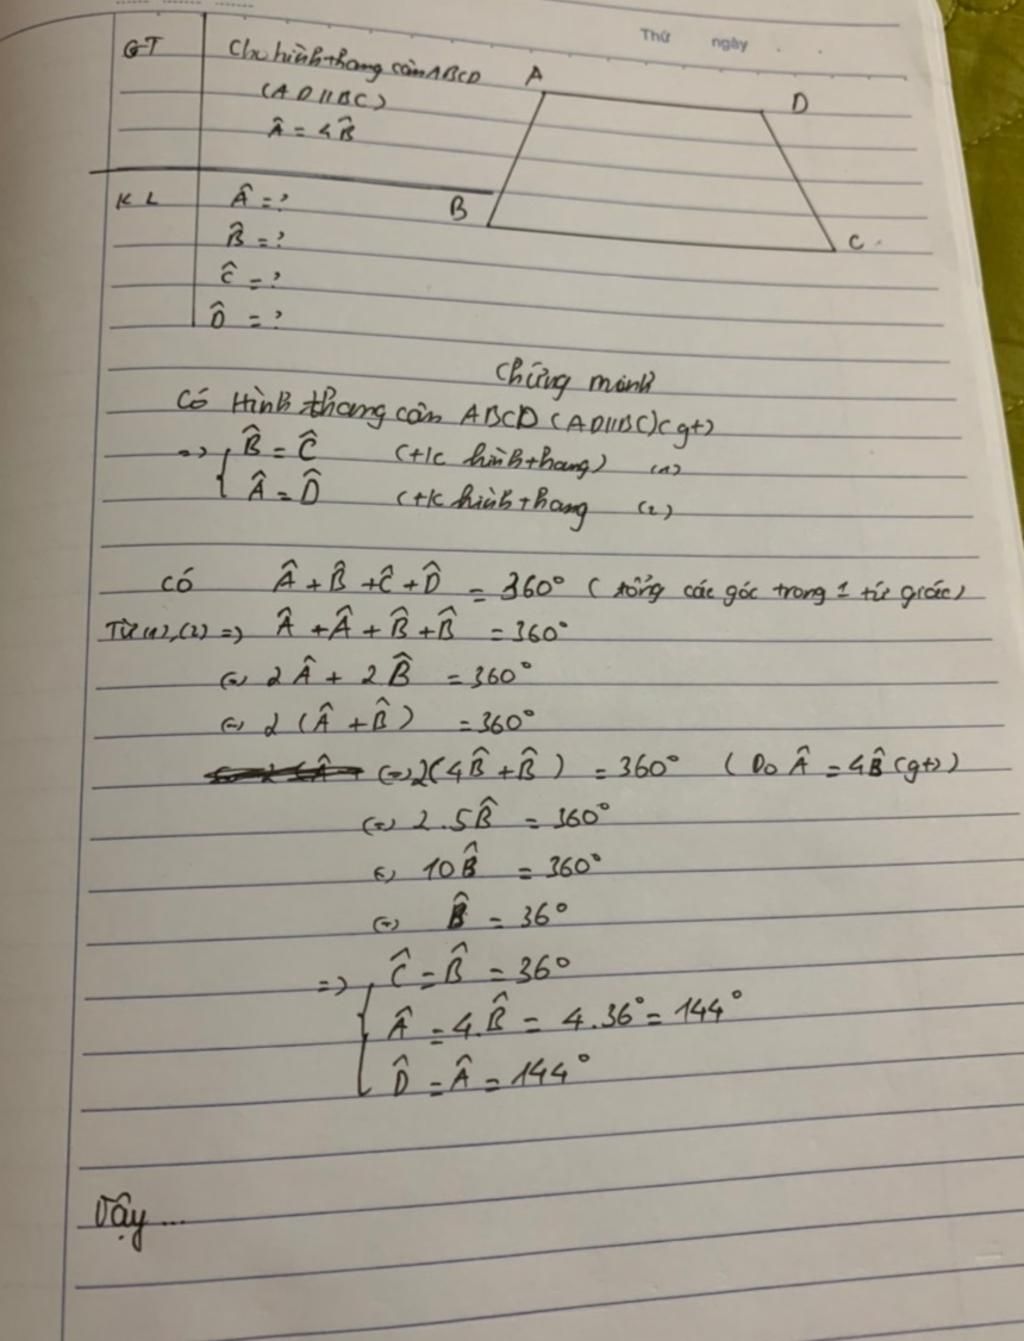 Thứ ngày . .
GT Cho hình thang cân ABCD
(AD//BC)
Â = 4B̂
KL Â = ?
B̂ = ?
Ĉ = ?
D̂ = ?
A
D
B
C
Chứng minh
Có Hình thang cân ABCD (AD//BC) (gt)
=> { B̂ = Ĉ (t/c hình thang) (1)
Â = D̂ (t/c hình thang (2)
Có Â + B̂ + Ĉ + D̂ = 360° (tổng các góc trong 1 tứ giác)
Từ (1), (2) => Â + Â + B̂ + B̂ = 360°
(=) 2Â + 2B̂ = 360°
(=) 2(Â + B̂) = 360°
(=) 2(4B̂ + B̂) = 360° (Do Â = 4B̂ (gt))
(=) 2.5B̂ = 360°
(=) 10B̂ = 360°
(=) B̂ = 36°
=> { Ĉ = B̂ = 36°
Â = 4.B̂ = 4.36° = 144°
D̂ = Â = 144°
Vậy...